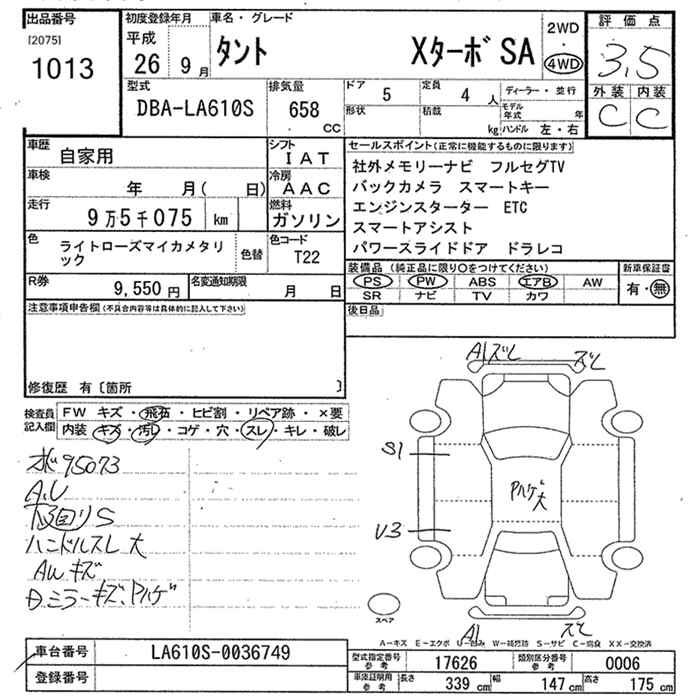 出品番号 初度登録年月 車名・グレード 評価点
[2075] 平成 2WD ・ 4WD
1013 26 9月 タント Xターボ SA 3.5
型式 排気量 ドア 5 定員 4人 ディーラー・並行 外装 内装
DBA-LA610S 658 CC 形状 積載 kg モデル年式 年 C C
ハンドル 左・右
車歴 自家用 シフト IAT セールスポイント(正常に機能するものに限ります)
車検 年 月( 日) 冷房 AAC 社外メモリーナビ フルセグTV
バックカメラ スマートキー
走行 9万5千075 km 燃料 ガソリン エンジンスターター ETC
スマートアシスト
色 ライトローズマイカメタリック 色替 色コード T22 パワースライドドア ドラレコ
R券 9,550円 名変通知期限 月 日 装備品(純正品に限り○をつけてください) 新車保証書
PS PW ABS エアB AW 有・無
SR ナビ TV カワ
注意事項申告欄(不具合内容等は具体的に記入して下さい) 後日品
修復歴 有〔箇所 〕
検査員記入欄 FW キズ・飛石・ヒビ割・リペア跡・×要
内装 キズ・汚レ・コゲ・穴・スレ・キレ・破レ
A1 ズレ ズレ
メ 95073 S1
A.U Pハゲ大
下回りS
ハンドルスレ大 U3
AWキズ
Dミラーキズ、Pハゲ
スペア
A1 ズレ
A-キズ E-エクボ U-凹み W-補修跡 S-サビ C-腐食 XX-交換済
車台番号 LA610S-0036749 型式指定番号参考 17626 類別区分番号参考 0006
登録番号 車庫証明用参考 長さ 339cm 幅 147cm 高さ 175cm